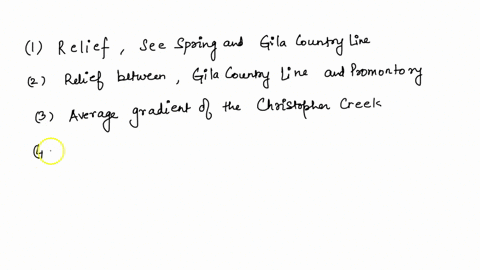 (1) Relief, See Spring and Gila Country Line
(2) Relief between, Gila Country Line and Promontory
(3) Average gradient of the Christopher Creek
(4